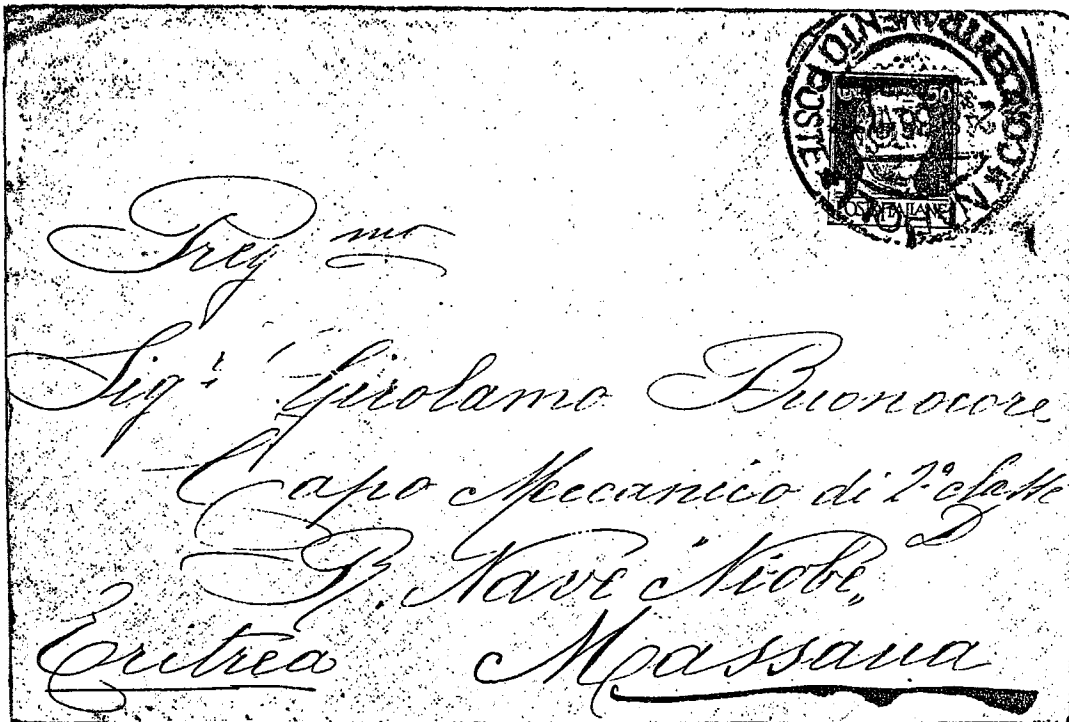 CONCENTRAMENTO POSTE
50
POSTE ITALIANE
Preg mo
Sigr Girolamo Buonocore
Capo Meccanico di 2a classe
R. Nave "Niobe"
Eritrea Massaua